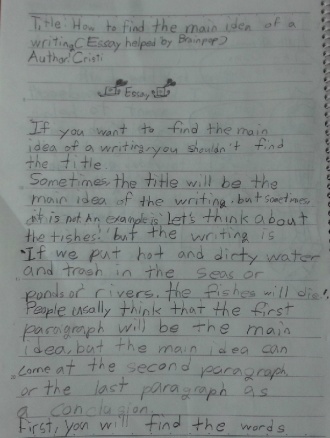 Title: How to find the main idea of a
writing( Essay helped by Brainpop)
Author: Cristi
Essay
If you want to find the main
idea of a writing, you shouldn't find
the title.
Sometimes the title will be the
main idea of the writing, but sometimes
it is not. An example is "let's think about
the fishes." but the writing is
"If we put hot and dirty water
and trash in the seas or
ponds or rivers, the fishes will die".
People usally think that the first
paragraph will be the main
idea, but the main idea can
come at the second paragraph
or the last paragraph as
a conclusion.
First, you will find the words